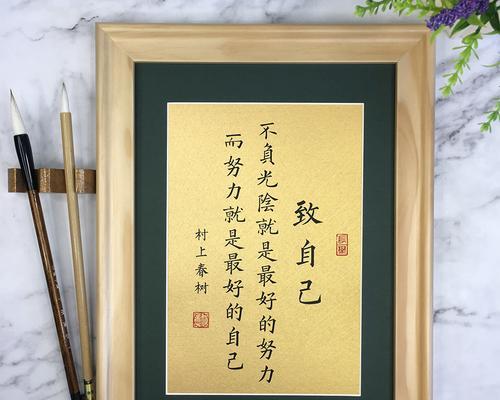 致自己
不負光陰就是最好的努力
而努力就是最好的自己
村上春树